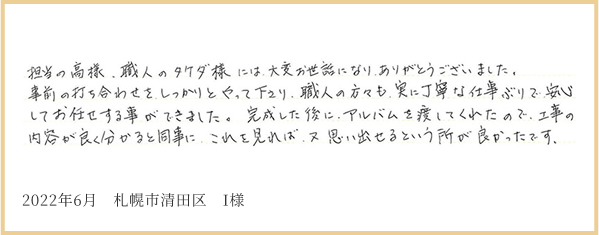 担当の高様、職人のタケダ様には、大変お世話になり、ありがとうございました。
事前の打ち合わせを、しっかりとやって下さり、職人の方々も、実に丁寧な仕事ぶりで、安心
してお任せする事ができました。完成した後に、アルバムを渡してくれたので、工事の
内容が良く分かると同事に、これを見れば、又思い出せるという所が良かったです。
2022年6月 札幌市清田区 I様